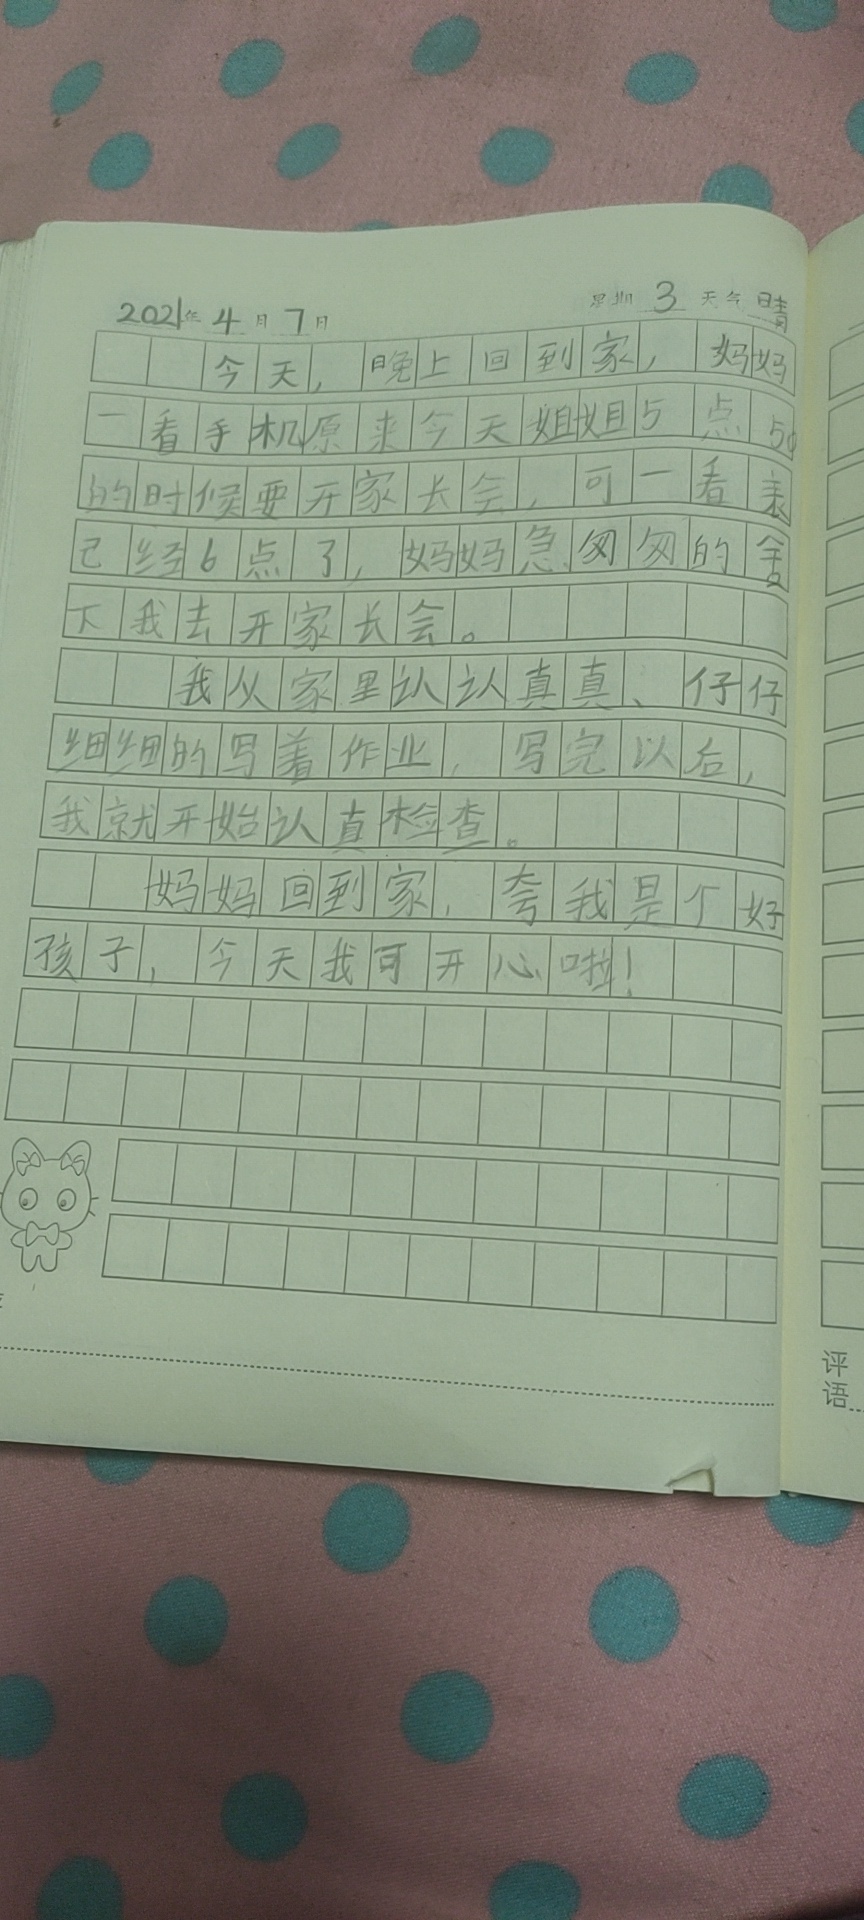 2021年 4 月 7 日 星期 3 天气 晴
今天，晚上回到家，妈妈
一看手机原来今天姐姐5点50
的时候要开家长会，可一看表
已经6点了，妈妈急匆匆的舍
下我去开家长会。
我从家里认认真真、仔仔
细细的写着作业，写完以后，
我就开始认真检查。
妈妈回到家，夸我是个好
孩子，今天我可开心啦！
评
语